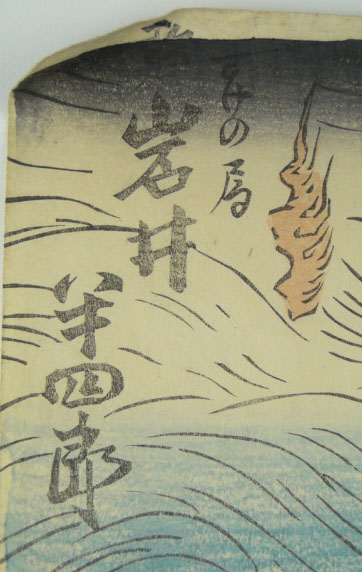 の局
岩井
半四郎